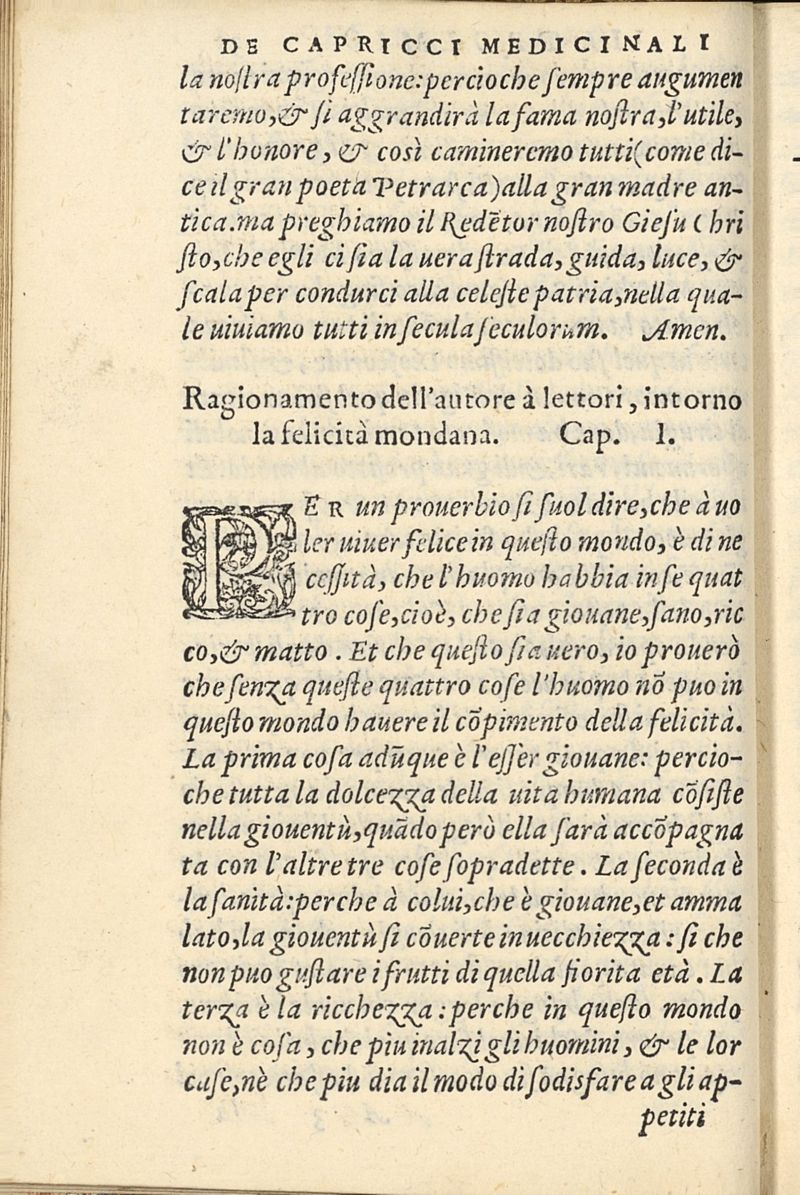 DE CAPRICCI MEDICINALI
la noſtra profeſſione: percioche ſempre augumen
taremo, & ſi aggrandirà la fama noſtra, l'utile,
& l'honore, & così camineremo tutti (come di-
ce il gran poeta Petrarca) alla gran madre an-
tica. ma preghiamo il Redẽtor noſtro Gieſu Chri
ſto, che egli ci ſia la uera ſtrada, guida, luce, &
ſcala per condurci alla celeſte patria, nella qua-
le uiuiamo tutti in ſecula ſeculorum. Amen.
Ragionamento dell'autore à lettori, intorno
la felicità mondana. Cap. 1.
PER un prouerbio ſi ſuol dire, che à uo
ler uiuer felice in queſto mondo, è di ne
ceſſità, che l'huomo habbia in ſe quat
tro coſe, cioè, che ſia giouane, ſano, ric
co, & matto. Et che queſto ſia uero, io prouerò
che ſenza queſte quattro coſe l'huomo nõ puo in
queſto mondo hauere il cõpimento della felicità.
La prima coſa adũque è l'eſſer giouane: percio-
che tutta la dolcezza della uita humana cõſiſte
nella giouentù, quãdo però ella ſarà accõpagna
ta con l'altre tre coſe ſopradette. La ſeconda è
la ſanità: perche à colui, che è giouane, et amma
lato, la giouentù ſi cõuerte in uecchiezza: ſi che
non puo guſtare i frutti di quella fiorita età. La
terza è la ricchezza: perche in queſto mondo
non è coſa, che piu inalzi gli huomini, & le lor
caſe, nè che piu dia il modo di ſodisfare a gli ap-
petiti